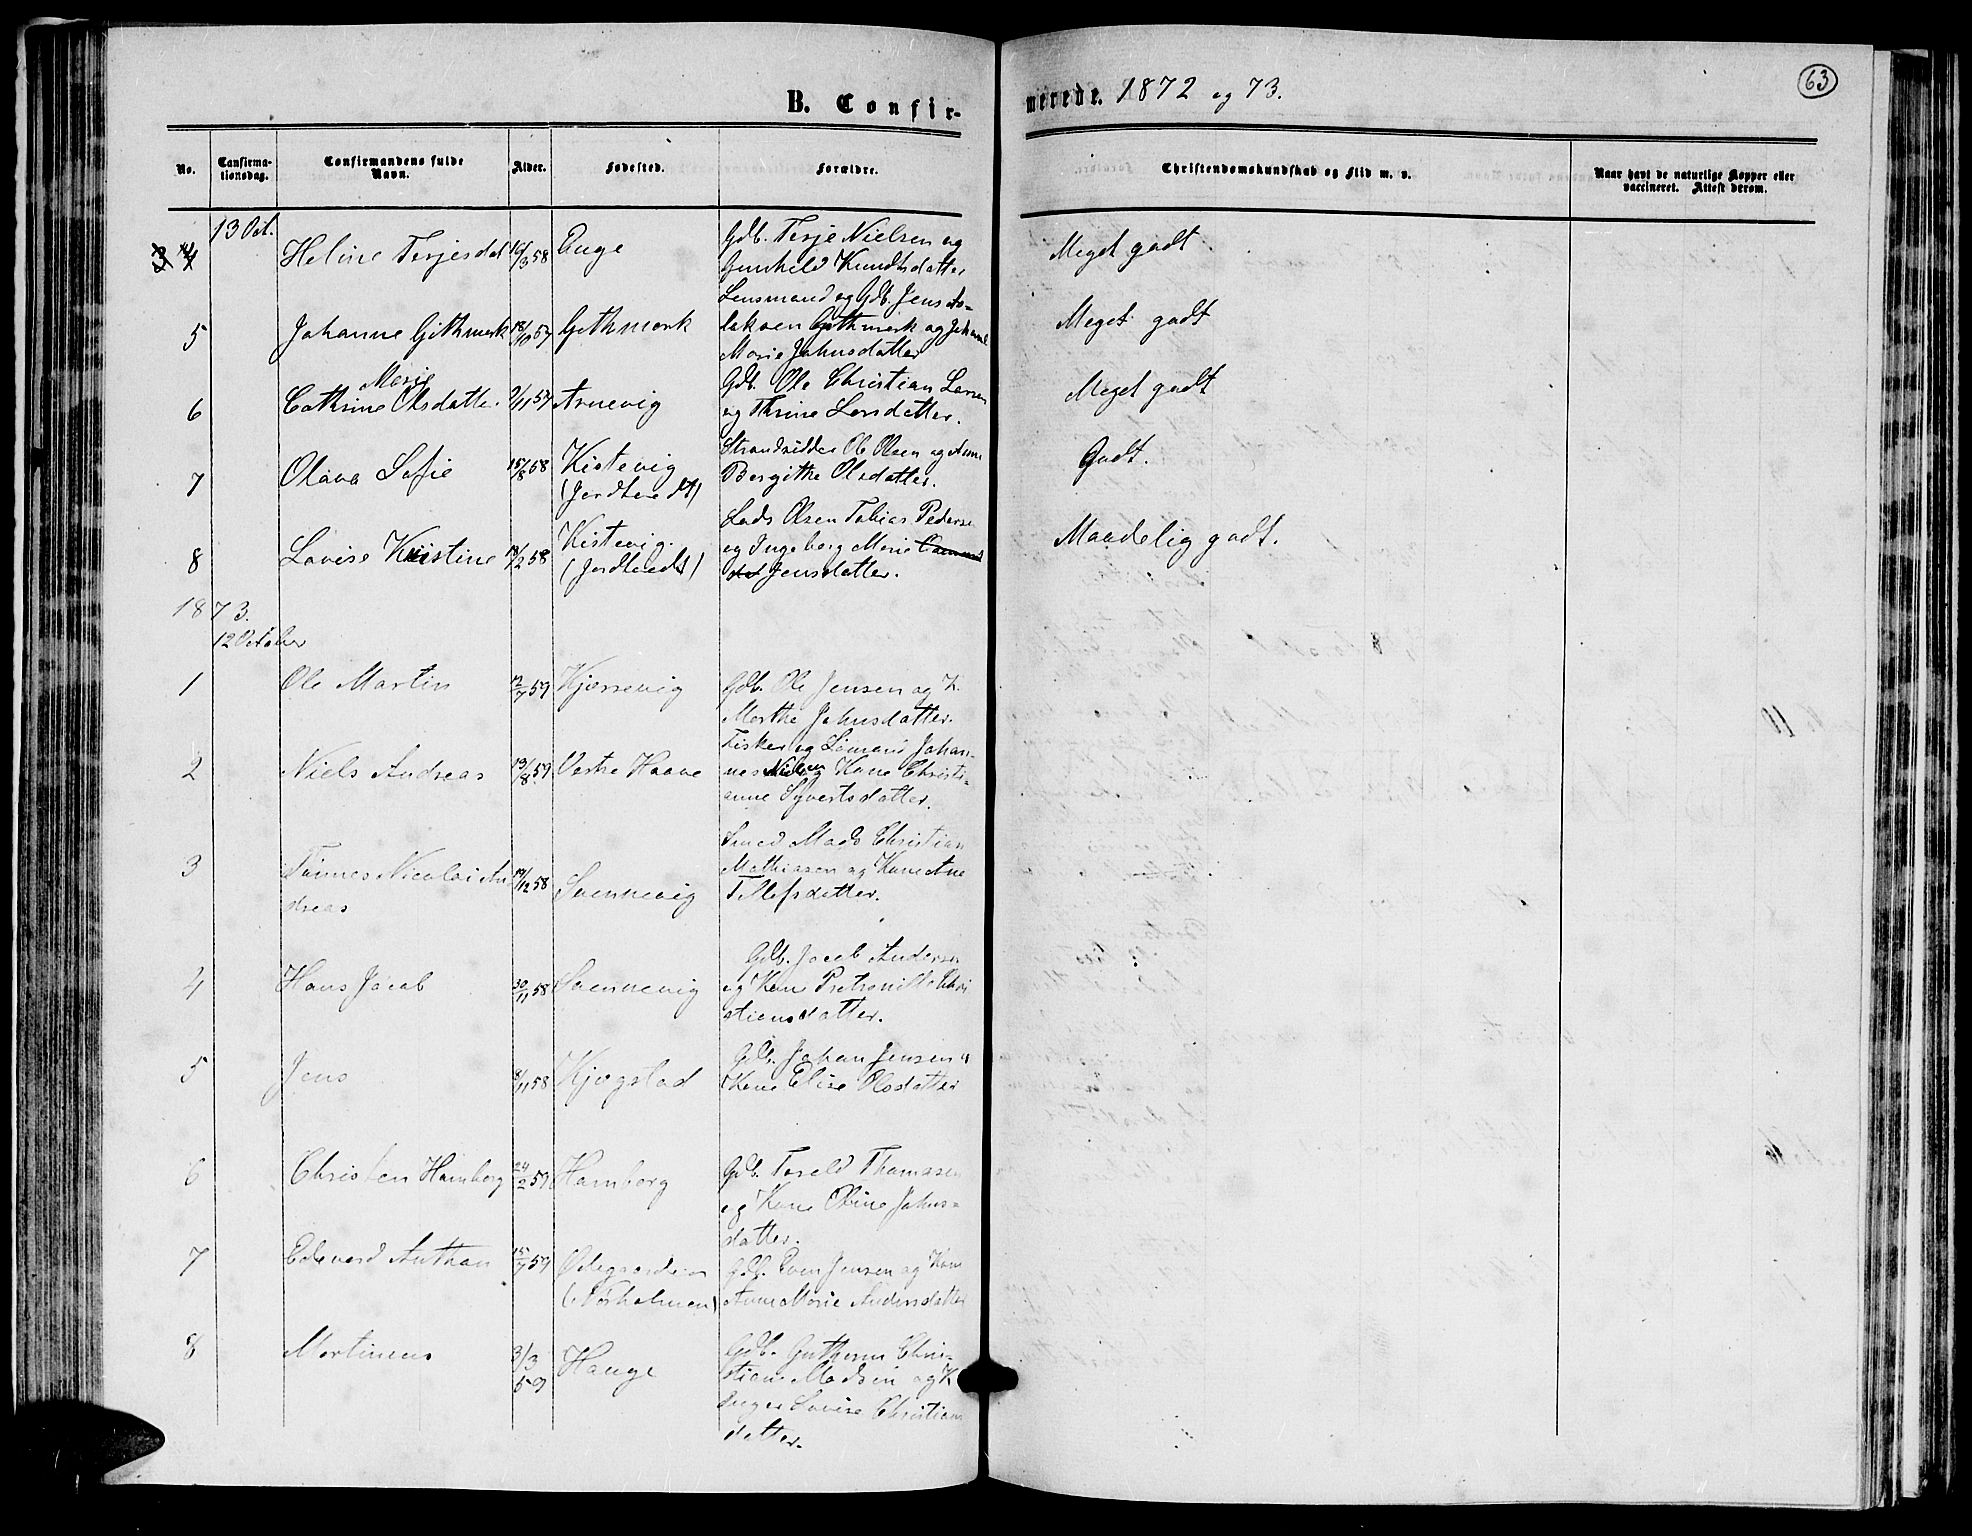 B. Confir-
merede. 1872 og 73.
63
No.
Confirma-
tionsdag.
Confirmandens fulde
Navn.
Alder.
Fødested.
Forældre.
Christendomskundskab og Flid m. v.
Naar havt de naturlige Kopper eller
vaccineret. Attest derom.
13 Oct.
4 Heline Terjesdat 16/3 58 Auge
Gdb. Terje Nielsen og
Gunhild Knudtsdatter
Meget godt
5 Johanne Githmark 18/10 57 Githmark
Lensmand og Gdb. Jens As-
laksen Githmark og Johanne
Marie Johnsdatter
Meget godt
6 Cathrine Marie Olsdatter 9/11 57 Arnevig
Gdb. Ole Christian Larsen
og Thrine Larsdatter.
Meget godt
7 Olava Sofie 15/8 58 Kistevig
(Jordtvedt)
Strandsidder Ole Olsen og Anne
Bergithe Olsdatter.
Godt.
8 Lovise Kristine 19/2 58 Kistevig.
(Jordtvedt)
Lods Olsen Tobias Peders
og Ingeborg Marie
Jensdatter.
Maadelig godt.
1873.
12 October
1 Ole Martin 12/7 59 Kjørrevig
Gdb. Ole Jensen og K.
Marthe Johnsdatter.
2 Niels Andreas 19/8 59 Vestre Haave
Fisker og Sömand Johan-
nes Nielsen og Kone Christi-
anne Syvertsdatter.
3 Tönnes Nicolai An-
dreas 19/12 58 Svennevig
Smed Mads Christian
Mathiassen og Kone Ane
Tellefsdatter.
4 Hans Jacob 30/11 58 Svennevig
Gdb. Jacob Anders
og Kone Petronille Chri
stiansdatter.
5 Jens 8/11 58 Kjøgstad
Gdb. Johan Jensen
Kone Elise Olsdatter
6 Christen Hamborg 24/2 59 Hamborg
Gdb. Toreld Thomasen
og Kone Oline Johns-
datter.
7 Edevard Anthon 15/7 59 Ødegaarden
(Nørholmen)
Gdb. Even Jensen og Kone
Anne Marie Andersdatter
8 Martinius 3/3
59 Hauge
Gdb. Guttorm Chri-
stian Madsen og K
Inger Lovise Christian
datter.